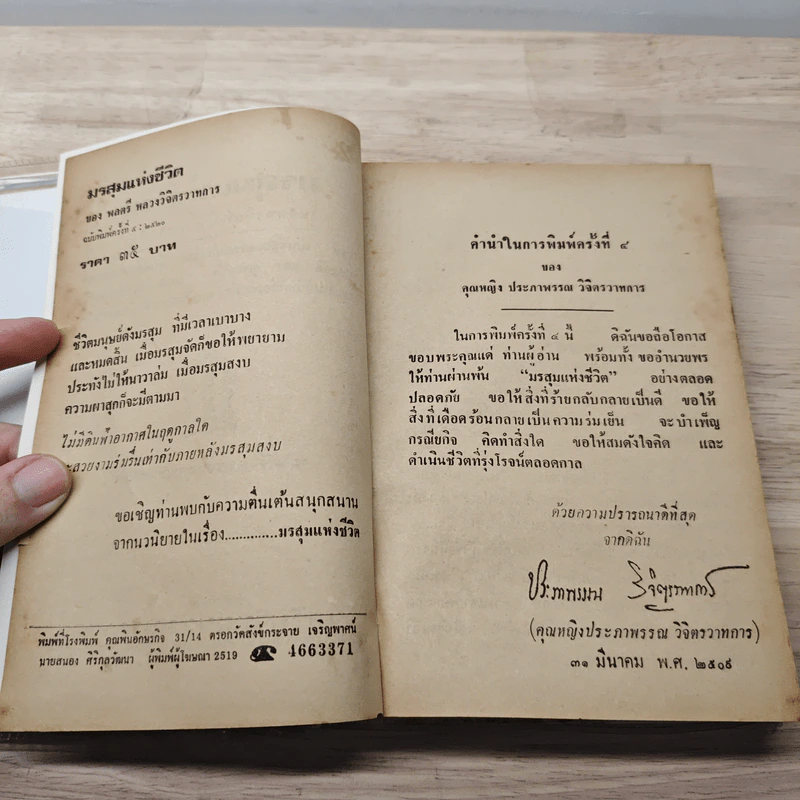 มรสุมแห่งชีวิต
ของ พลตรี หลวงวิจิตรวาทการ
ฉบับพิมพ์ครั้งที่ ๔ : ๒๕๒๐
ราคา ๓๕ บาท
ชีวิตมนุษย์ดังมรสุม ที่มีเวลาเบาบาง
และหมดสิ้น เมื่อมรสุมจัดก็ขอให้พยายาม
ประทังไม่ให้นาวาล่ม เมื่อมรสุมสงบ
ความผาสุกก็จะมีตามมา
ไม่มีดินฟ้าอากาศในฤดูกาลใด
จะสวยงามร่มรื่นเท่ากับภายหลังมรสุมสงบ
ขอเชิญท่านพบกับความตื่นเต้นสนุกสนาน
จากนวนิยายในเรื่อง.............มรสุมแห่งชีวิต
พิมพ์ที่โรงพิมพ์ คุณพินอักษรกิจ 31/14 ตรอกวัดสังข์กระจาย เจริญพาศน์
นายสนอง ศิริกุลวัฒนา ผู้พิมพ์ผู้โฆษณา 2519 ☎ 4663371
คำนำในการพิมพ์ครั้งที่ ๔
ของ
คุณหญิง ประภาพรรณ วิจิตรวาทการ
ในการพิมพ์ครั้งที่ ๔ นี้ ดิฉันขอถือโอกาส
ขอบพระคุณแด่ ท่านผู้อ่าน พร้อมทั้ง ขออำนวยพร
ให้ท่านผ่านพ้น "มรสุมแห่งชีวิต" อย่างตลอด
ปลอดภัย ขอให้ สิ่งที่ร้ายกลับกลายเป็นดี ขอให้
สิ่งที่เดือดร้อนกลายเป็นความร่มเย็น จะบำเพ็ญ
กรณียกิจ คิดทำสิ่งใด ขอให้สมดังใจคิด และ
ดำเนินชีวิตที่รุ่งโรจน์ตลอดกาล
ด้วยความปรารถนาดีที่สุด
จากดิฉัน
ประภาพรรณ วิจิตรวาทการ
(คุณหญิงประภาพรรณ วิจิตรวาทการ)
๓๑ มีนาคม พ.ศ. ๒๕๐๙